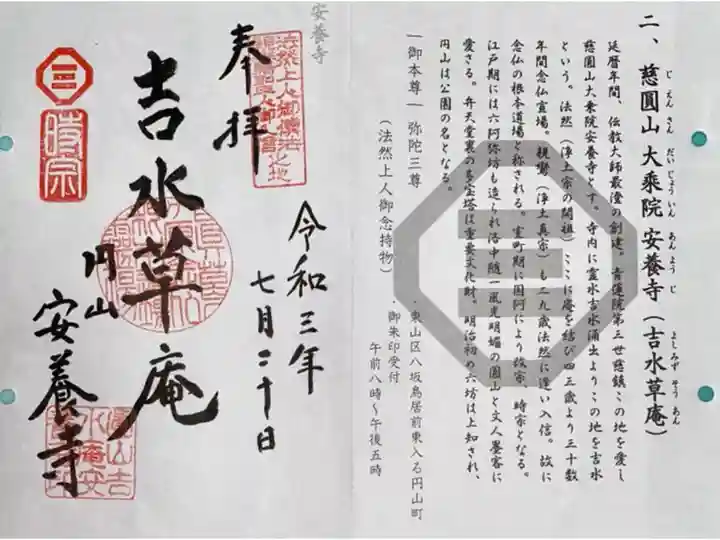 二、慈圓山 大乗院 安養寺（吉水草庵）
じ えん さん だい じょう いん あん よう じ よし みず そう あん
延暦年間、伝教大師最澄の創建。青蓮院第三世慈鎮この地を愛し
慈圓山大乗院安養寺とす。寺内に霊水吉水涌出よりこの地を吉水
という。法然（浄土宗の開祖）ここに庵を結び四三歳より三十数
年間念仏宣場。親鸞（浄土真宗）も二九歳法然に逢い入信。故に
念仏の根本道場と称される。室町期に国阿により故宗、時宗となる。
江戸期には六阿弥坊も造られ洛中随一風光明媚の圓山と文人墨客に
愛さる。弁天堂裏の多宝塔は重要文化財。明治初め六坊は上知され、
円山は公園の名となる。
一御本尊一 弥陀三尊
（法然上人御念持物）
・東山区八坂鳥居前東入る円山町
・御朱印受付
午前八時〜午後五時
安養寺
奉拝
法然上人御
吉水草庵
令和三年
七月二十日
円山
安養寺
三
時宗